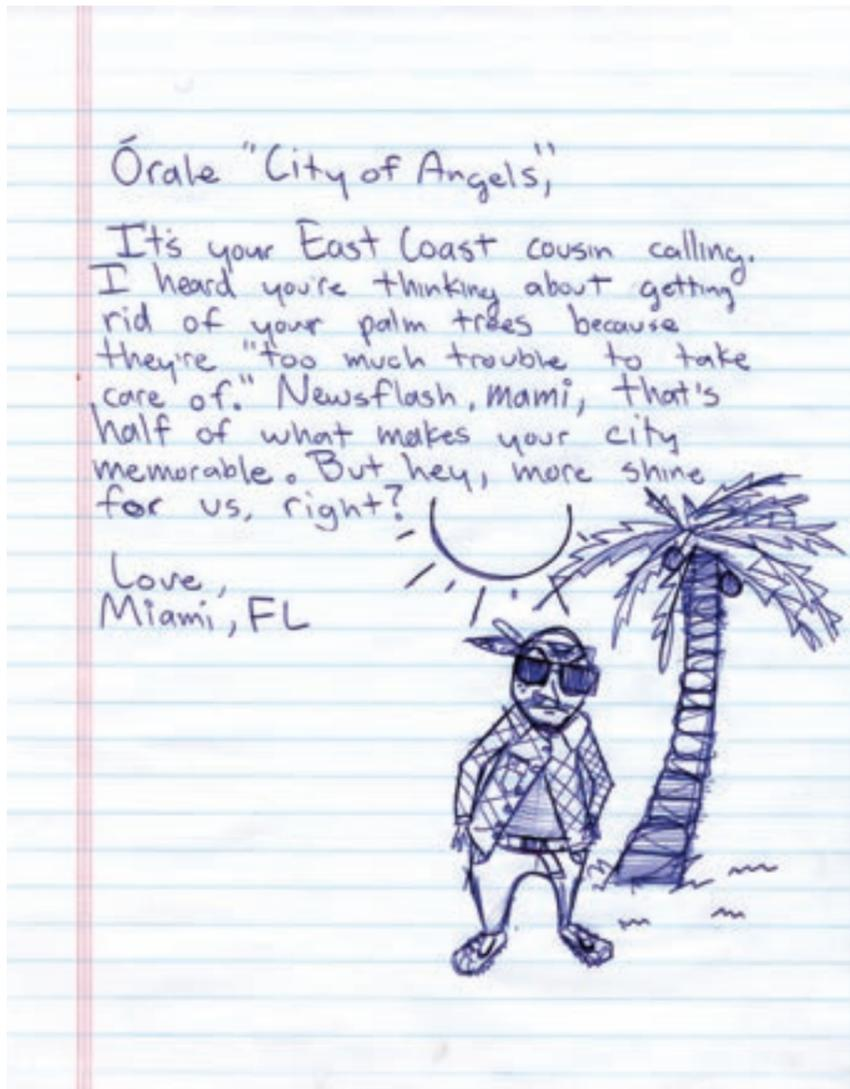 Órale "City of Angels",
It's your East Coast cousin calling.
I heard you're thinking about getting
rid of your palm trees because
they're "too much trouble to take
care of." Newsflash, mami, that's
half of what makes your city
memorable. But hey, more shine
for us, right?
Love,
Miami, FL